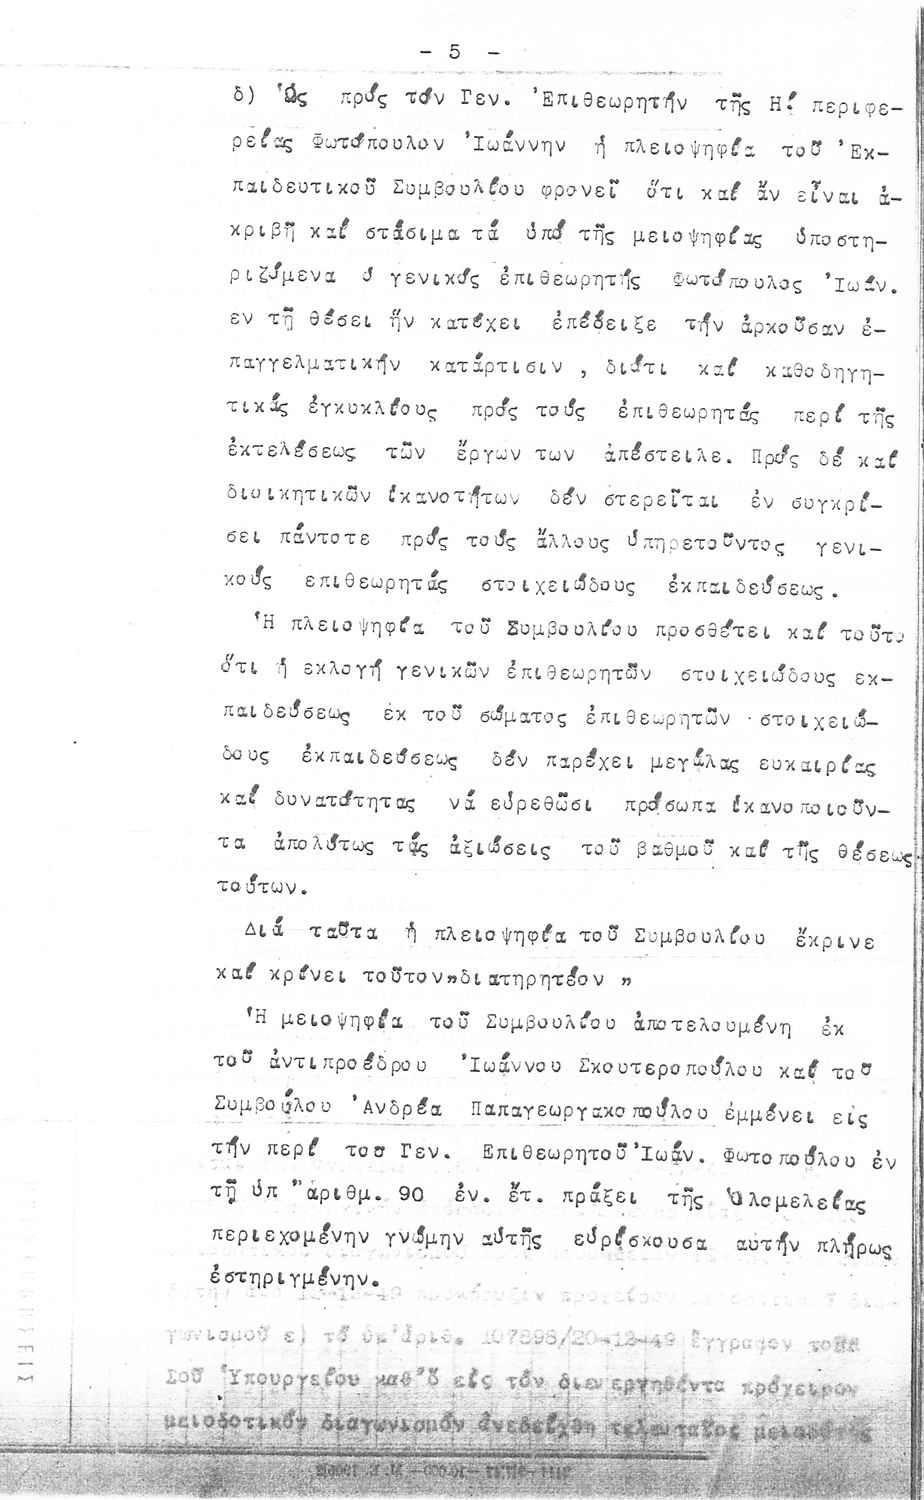 - 5 -
δ) Ὡς πρός τόν Γεν. Ἐπιθεωρητήν τῆς Η! περιφε-
ρείας Φωτόπουλον Ἰωάννην ἡ πλειοψηφία τοῦ Ἐκ-
παιδευτικοῦ Συμβουλίου φρονεῖ ὅτι καί ἄν εἶναι ἀ-
κριβῆ καί στάσιμα τά ὑπό τῆς μειοψηφίας ὑποστη-
ριζόμενα ὁ γενικός ἐπιθεωρητής Φωτόπουλος Ἰωάν.
εν τῇ θέσει ἥν κατέχει ἐπέδειξε τήν ἀρκοῦσαν ἐ-
παγγελματικήν κατάρτισιν , διότι καί καθοδηγη-
τικάς ἐγκυκλίους πρός τούς ἐπιθεωρητάς περί τῆς
ἐκτελέσεως τῶν ἔργων των ἀπέστειλε. Πρός δέ καί
διοικητικῶν ἱκανοτήτων δέν στερεῖται ἐν συγκρί-
σει πάντοτε πρός τούς ἄλλους ὑπηρετοῦντος γενι-
κούς επιθεωρητάς στοιχειώδους ἐκπαιδεύσεως.
Ἡ πλειοψηφία τοῦ Συμβουλίου προσθέτει καί τοῦτο
ὅτι ἡ εκλογή γενικῶν ἐπιθεωρητῶν στοιχειώδους εκ-
παιδεύσεως ἐκ τοῦ σώματος ἐπιθεωρητῶν στοιχειώ-
δους ἐκπαιδεύσεως δέν παρέχει μεγάλας ευκαιρίας
καί δυνατότητας νά εὑρεθῶσι πρόσωπα ἱκανοποιοῦν-
τα ἀπολύτως τάς ἀξιώσεις τοῦ βαθμοῦ καί τῆς θέσεως
τούτων.
Διά ταῦτα ἡ πλειοψηφία τοῦ Συμβουλίου ἔκρινε
καί κρίνει τοῦτον„διατηρητέον „
Ἡ μειοψηφία τοῦ Συμβουλίου ἀποτελουμένη ἐκ
τοῦ ἀντιπροέδρου Ἰωάννου Σκουτεροπούλου καί τοῦ
Συμβούλου Ἀνδρέα Παπαγεωργακοπούλου ἐμμένει εἰς
τήν περί του Γεν. Επιθεωρητοῦ Ἰωάν. Φωτοπούλου ἐν
τῇ ὑπ "ἀριθμ. 90 ἐν. ἔτ. πράξει τῆς Ὁλομελείας
περιεχομένην γνώμην αὐτῆς εὑρίσκουσα αὐτήν πλήρως
ἐστηριγμένην.
12-12-49 προκήρυξιν προχείρου μειοδοτικοῦ δια-
γωνισμοῦ ε) τό ὑπ'ἀριθ. 107898/20-12-49 ἔγγραφον
Ὑπουργείου καθ'ὅ εἰς τόν διενεργηθέντα πρόχειρον
μειοδοτικόν διαγωνισμόν ἀνεδείχθη τελευταῖος μειοδότης